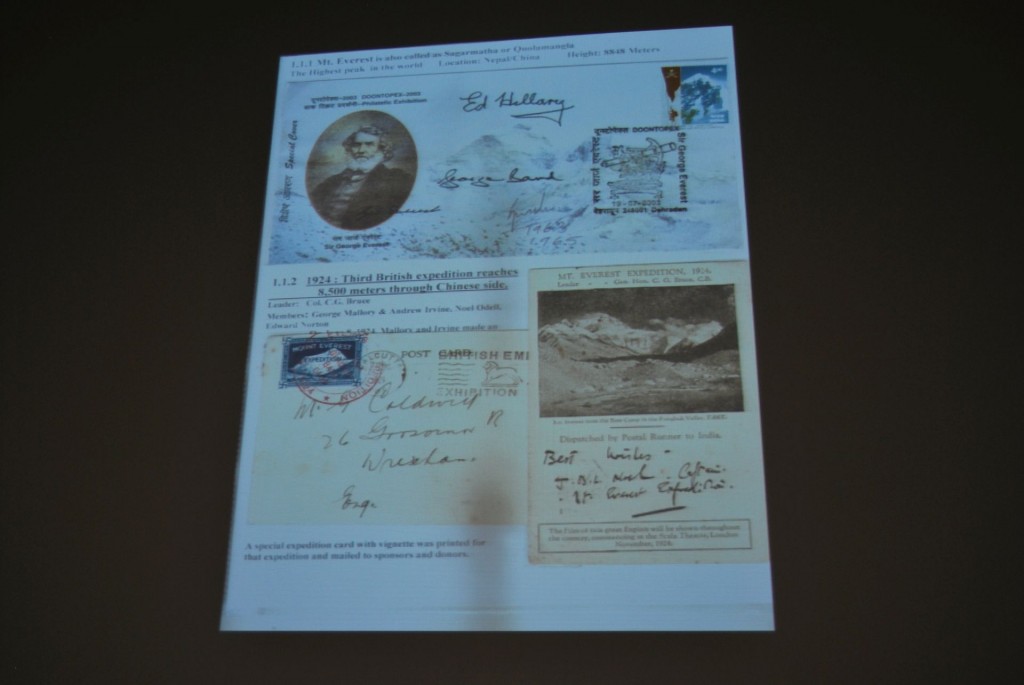 1.1.1 Mt. Everest is also called as Sagarmatha or Qoolumangla
The Highest peak in the world Location: Nepal/China Height: 8848 Meters
दूनटोपेक्स-2003 DOONTOPEX-2003
डाक टिकट प्रदर्शनी-Philatelic Exhibition
विशेष आवरण Special Cover
Ed Hillary
George Band
1965
1965
Sir George Everest
दूनटोपेक्स DOONTOPEX
Sir George Everest
Dehradun
1.1.2 1924 : Third British expedition reaches
8,500 meters through Chinese side.
Leader: Col. C.G. Bruce
Members: George Mallory & Andrew Irvine, Noel Odell,
Edward Norton
1924, Mallory and Irvine made an
MOUNT EVEREST
EXPEDITION
POST CARD
BRITISH EMP
EXHIBITION
Coldwell
26 Grosvenor R
Wrexham
Eng.
MT. EVEREST EXPEDITION, 1924.
Leader - - Gen. Hon. C. G. Bruce, C.B.
Dispatched by Postal Runner to India.
Best Wishes -
J.B.L. Noel. Captain.
Mt. Everest Expedition.
The Film of this great Exploit will be shown throughout
the country, commencing at the Scala Theatre, London
November, 1924.
A special expedition card with vignette was printed for
that expedition and mailed to sponsors and donors.